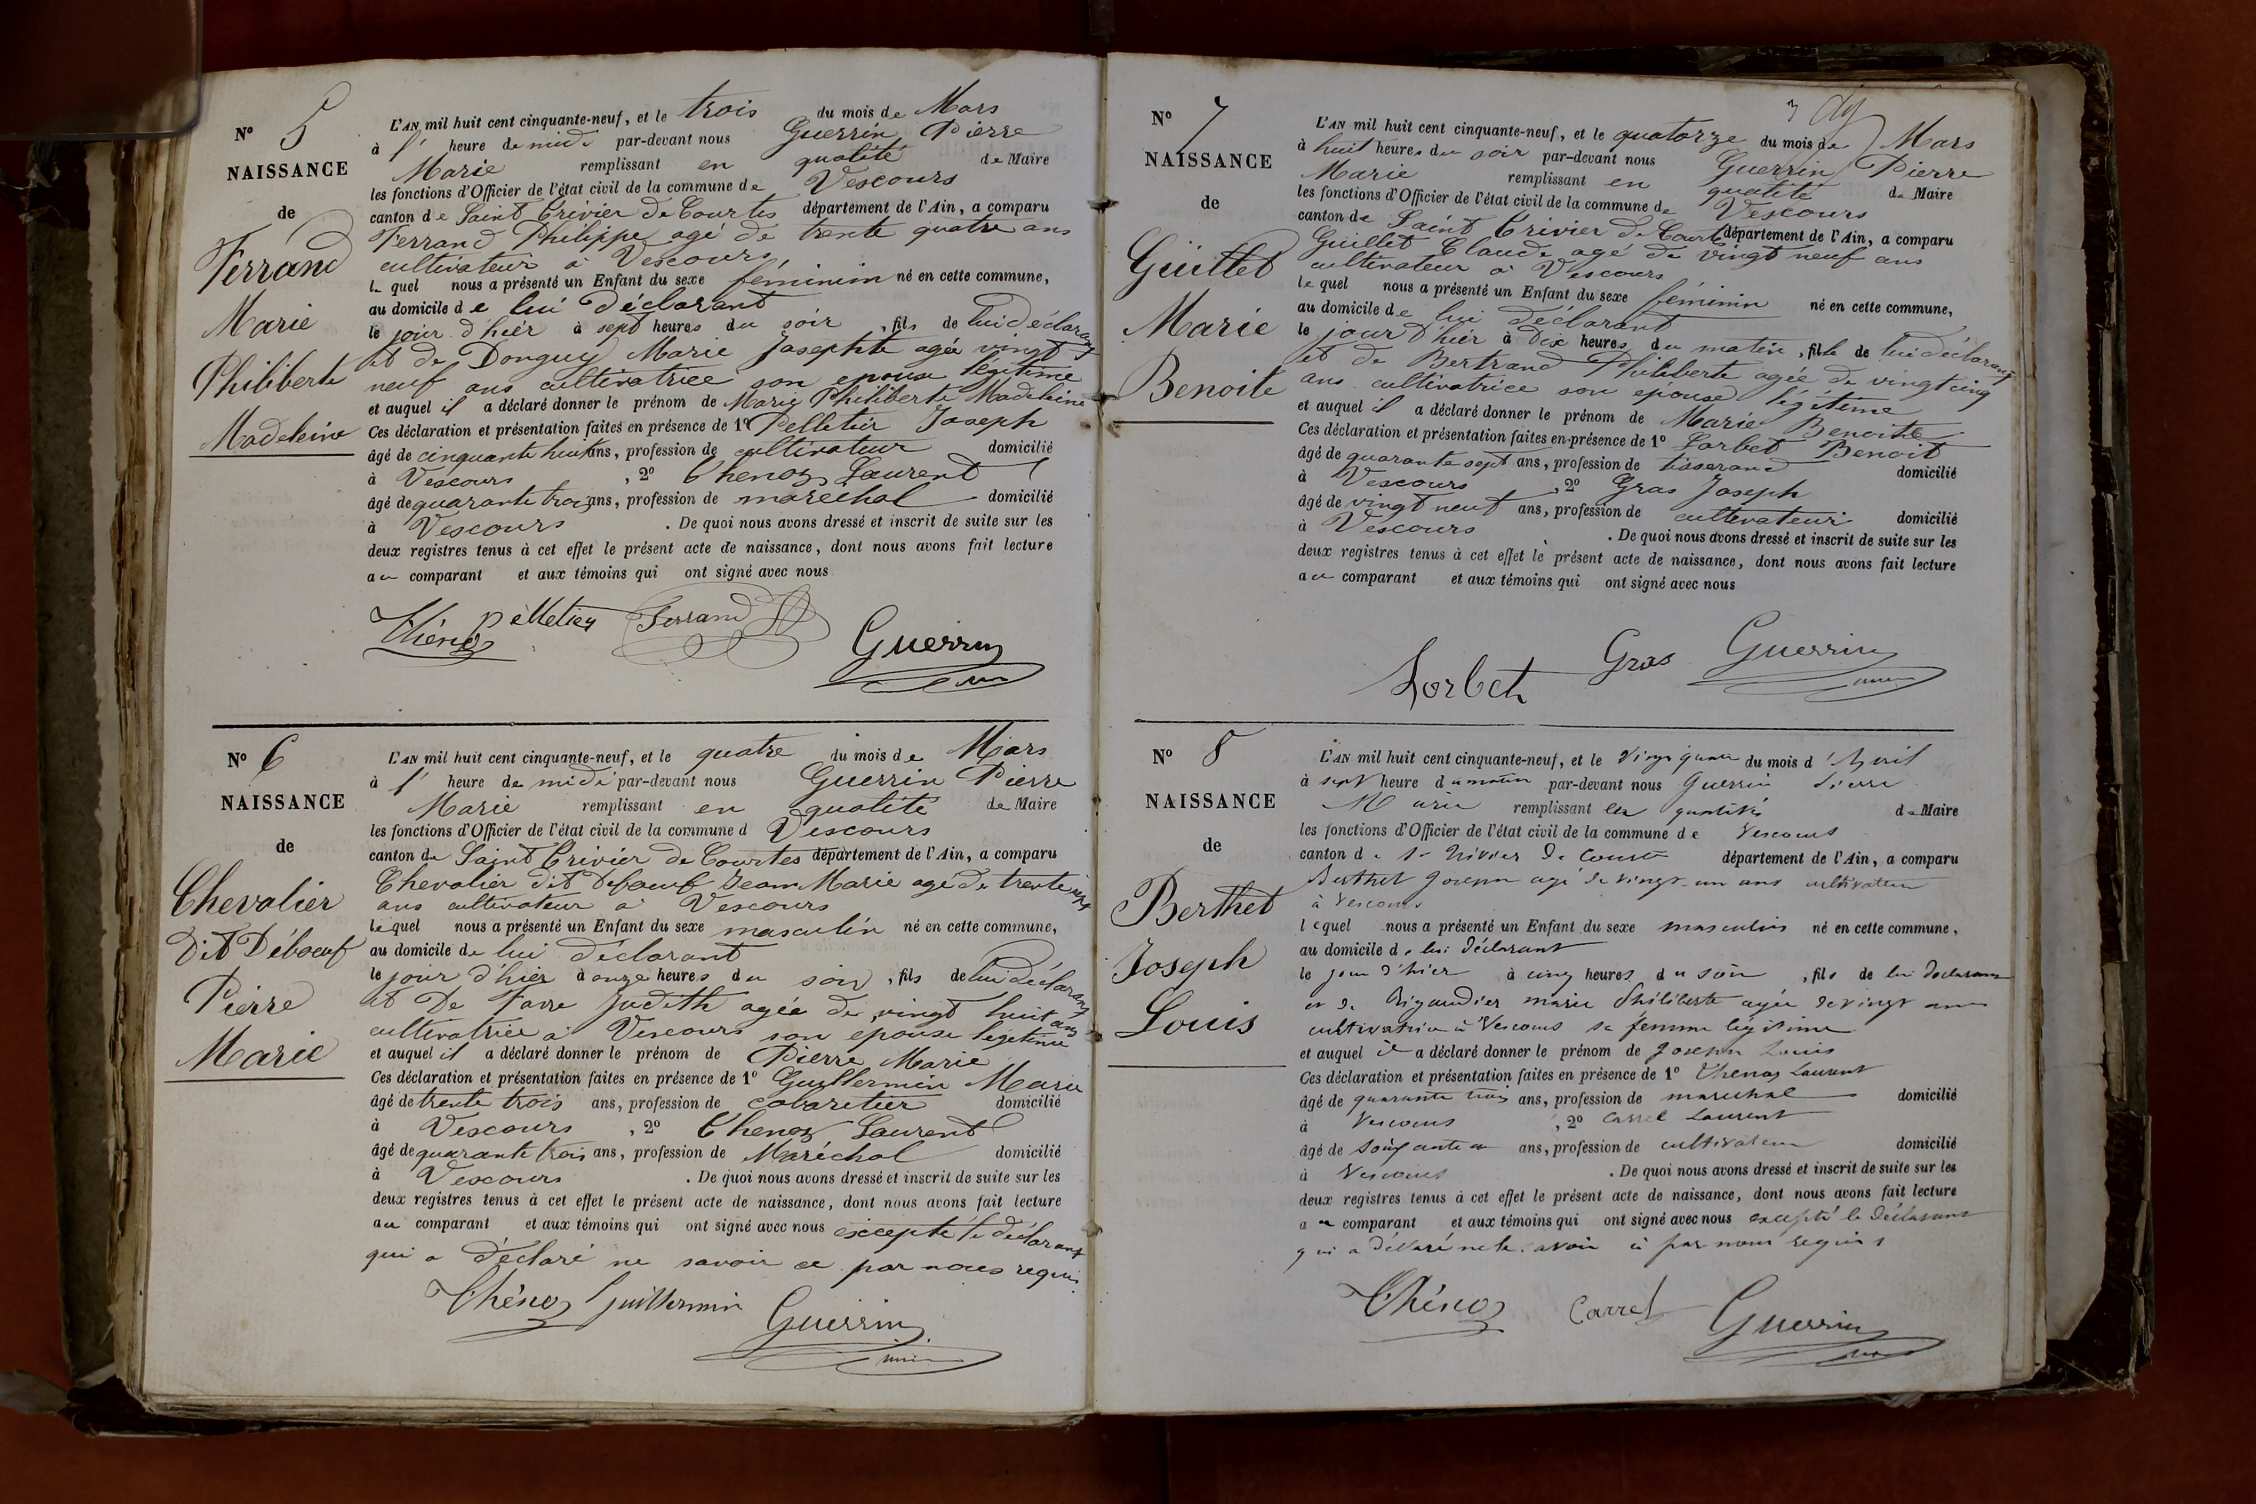 N° 5
NAISSANCE
de
Ferrand
Marie
Philiberte
Madeleine
L'AN mil huit cent cinquante-neuf, et le trois du mois de Mars
à l' heure de midi par-devant nous Guerrin Pierre
Marie remplissant en qualité de Maire
les fonctions d'Officier de l'état civil de la commune de Vescours
canton de Saint Trivier de Courtes département de l'Ain, a comparu
Ferrand Philippe agé de trente quatre ans
cultivateur à Vescours
le quel nous a présenté un Enfant du sexe féminin né en cette commune,
au domicile de lui déclarant
le jour d'hier à sept heures du soir , fils de lui déclarant
et de Donguy Marie Josephte agée vingt
neuf ans cultivatrice son epouse légitime
et auquel il a déclaré donner le prénom de Marie Philiberte Madeleine
Ces déclaration et présentation faites en présence de 1° Pelletier Joseph
âgé de cinquante huit ans, profession de cultivateur domicilié
à Vescours , 2° Thenoz Laurent
âgé de quarante trois ans, profession de maréchal domicilié
à Vescours . De quoi nous avons dressé et inscrit de suite sur les
deux registres tenus à cet effet le présent acte de naissance, dont nous avons fait lecture
au comparant et aux témoins qui ont signé avec nous
Thénoz pelletier Ferrand Guerrin
N° 6
NAISSANCE
de
Chevalier
Dit Débœuf
Pierre
Marie
L'AN mil huit cent cinquante-neuf, et le quatre du mois de Mars
à l' heure de midi par-devant nous Guerrin Pierre
Marie remplissant en qualité de Maire
les fonctions d'Officier de l'état civil de la commune d Vescours
canton de Saint Trivier de Courtes département de l'Ain, a comparu
Chevalier dit Debœuf Jean Marie agé de trente sept
ans cultivateur à Vescours
le quel nous a présenté un Enfant du sexe masculin né en cette commune,
au domicile de lui déclarant
le jour d'hier à onze heures du soir , fils de lui déclarant
et De Favre Judith agée de vingt huit ans
cultivatrice à Vescours son epouse légitime
et auquel il a déclaré donner le prénom de Pierre Marie
Ces déclaration et présentation faites en présence de 1° Guyllermin Marie
âgé de trente trois ans, profession de cabaretier domicilié
à Vescours , 2° Thenoz Laurent
âgé de quarante trois ans, profession de Maréchal domicilié
à Vescours . De quoi nous avons dressé et inscrit de suite sur les
deux registres tenus à cet effet le présent acte de naissance, dont nous avons fait lecture
au comparant et aux témoins qui ont signé avec nous excepté le déclarant
qui a déclaré ne savoir ce par nous requis
Thénoz Guillermin Guerrin
3
N° 7
NAISSANCE
de
Guillet
Marie
Benoite
L'AN mil huit cent cinquante-neuf, et le quatorze du mois de Mars
à huit heures du soir par-devant nous Guerrin Pierre
Marie remplissant en qualité de Maire
les fonctions d'Officier de l'état civil de la commune de Vescours
canton de Saint Trivier de Courtes département de l'Ain, a comparu
Guillet Claude agé de vingt neuf ans
cultivateur à Vescours
le quel nous a présenté un Enfant du sexe féminin né en cette commune,
au domicile de lui déclarant
le jour d'hier à dix heures du matin , fille de lui déclarant
et de Bertrand Philiberte agée de vingt cinq
ans cultivatrice son épouse légitime
et auquel il a déclaré donner le prénom de Marie Benoite
Ces déclaration et présentation faites en présence de 1° Lorbet Benoit
âgé de quarante sept ans, profession de tisserand domicilié
à Vescours , 2° Gras Joseph
âgé de vingt neuf ans, profession de cultivateur domicilié
à Vescours . De quoi nous avons dressé et inscrit de suite sur les
deux registres tenus à cet effet le présent acte de naissance, dont nous avons fait lecture
au comparant et aux témoins qui ont signé avec nous
Lorbet Gras Guerrin
N° 8
NAISSANCE
de
Berthet
Joseph
Louis
L'AN mil huit cent cinquante-neuf, et le Vingt quatre du mois d'Avril
à sept heure du matin par-devant nous Guerrin Pierre
Marie remplissant en qualité de Maire
les fonctions d'Officier de l'état civil de la commune de Vescours
canton de St Trivier de Courtes département de l'Ain, a comparu
Berthet Joseph agé de vingt-un ans cultivateur
à Vescours
lequel nous a présenté un Enfant du sexe masculin né en cette commune,
au domicile de lui déclarant
le jour d'hier à cinq heures du soir , fils de lui déclarant
et de Rigaudier marie Philiberte agée de vingt ans
cultivatrice à Vescours sa femme légitime
et auquel il a déclaré donner le prénom de Joseph Louis
Ces déclaration et présentation faites en présence de 1° Thenoz Laurent
âgé de quarante trois ans, profession de maréchal domicilié
à Vescours , 2° Carrel Laurent
âgé de soixante ans, profession de cultivateur domicilié
à Vescours . De quoi nous avons dressé et inscrit de suite sur les
deux registres tenus à cet effet le présent acte de naissance, dont nous avons fait lecture
au comparant et aux témoins qui ont signé avec nous excepté le déclarant
qui a déclaré ne le savoir à par nous requis
Thénoz Carrel Guerrin